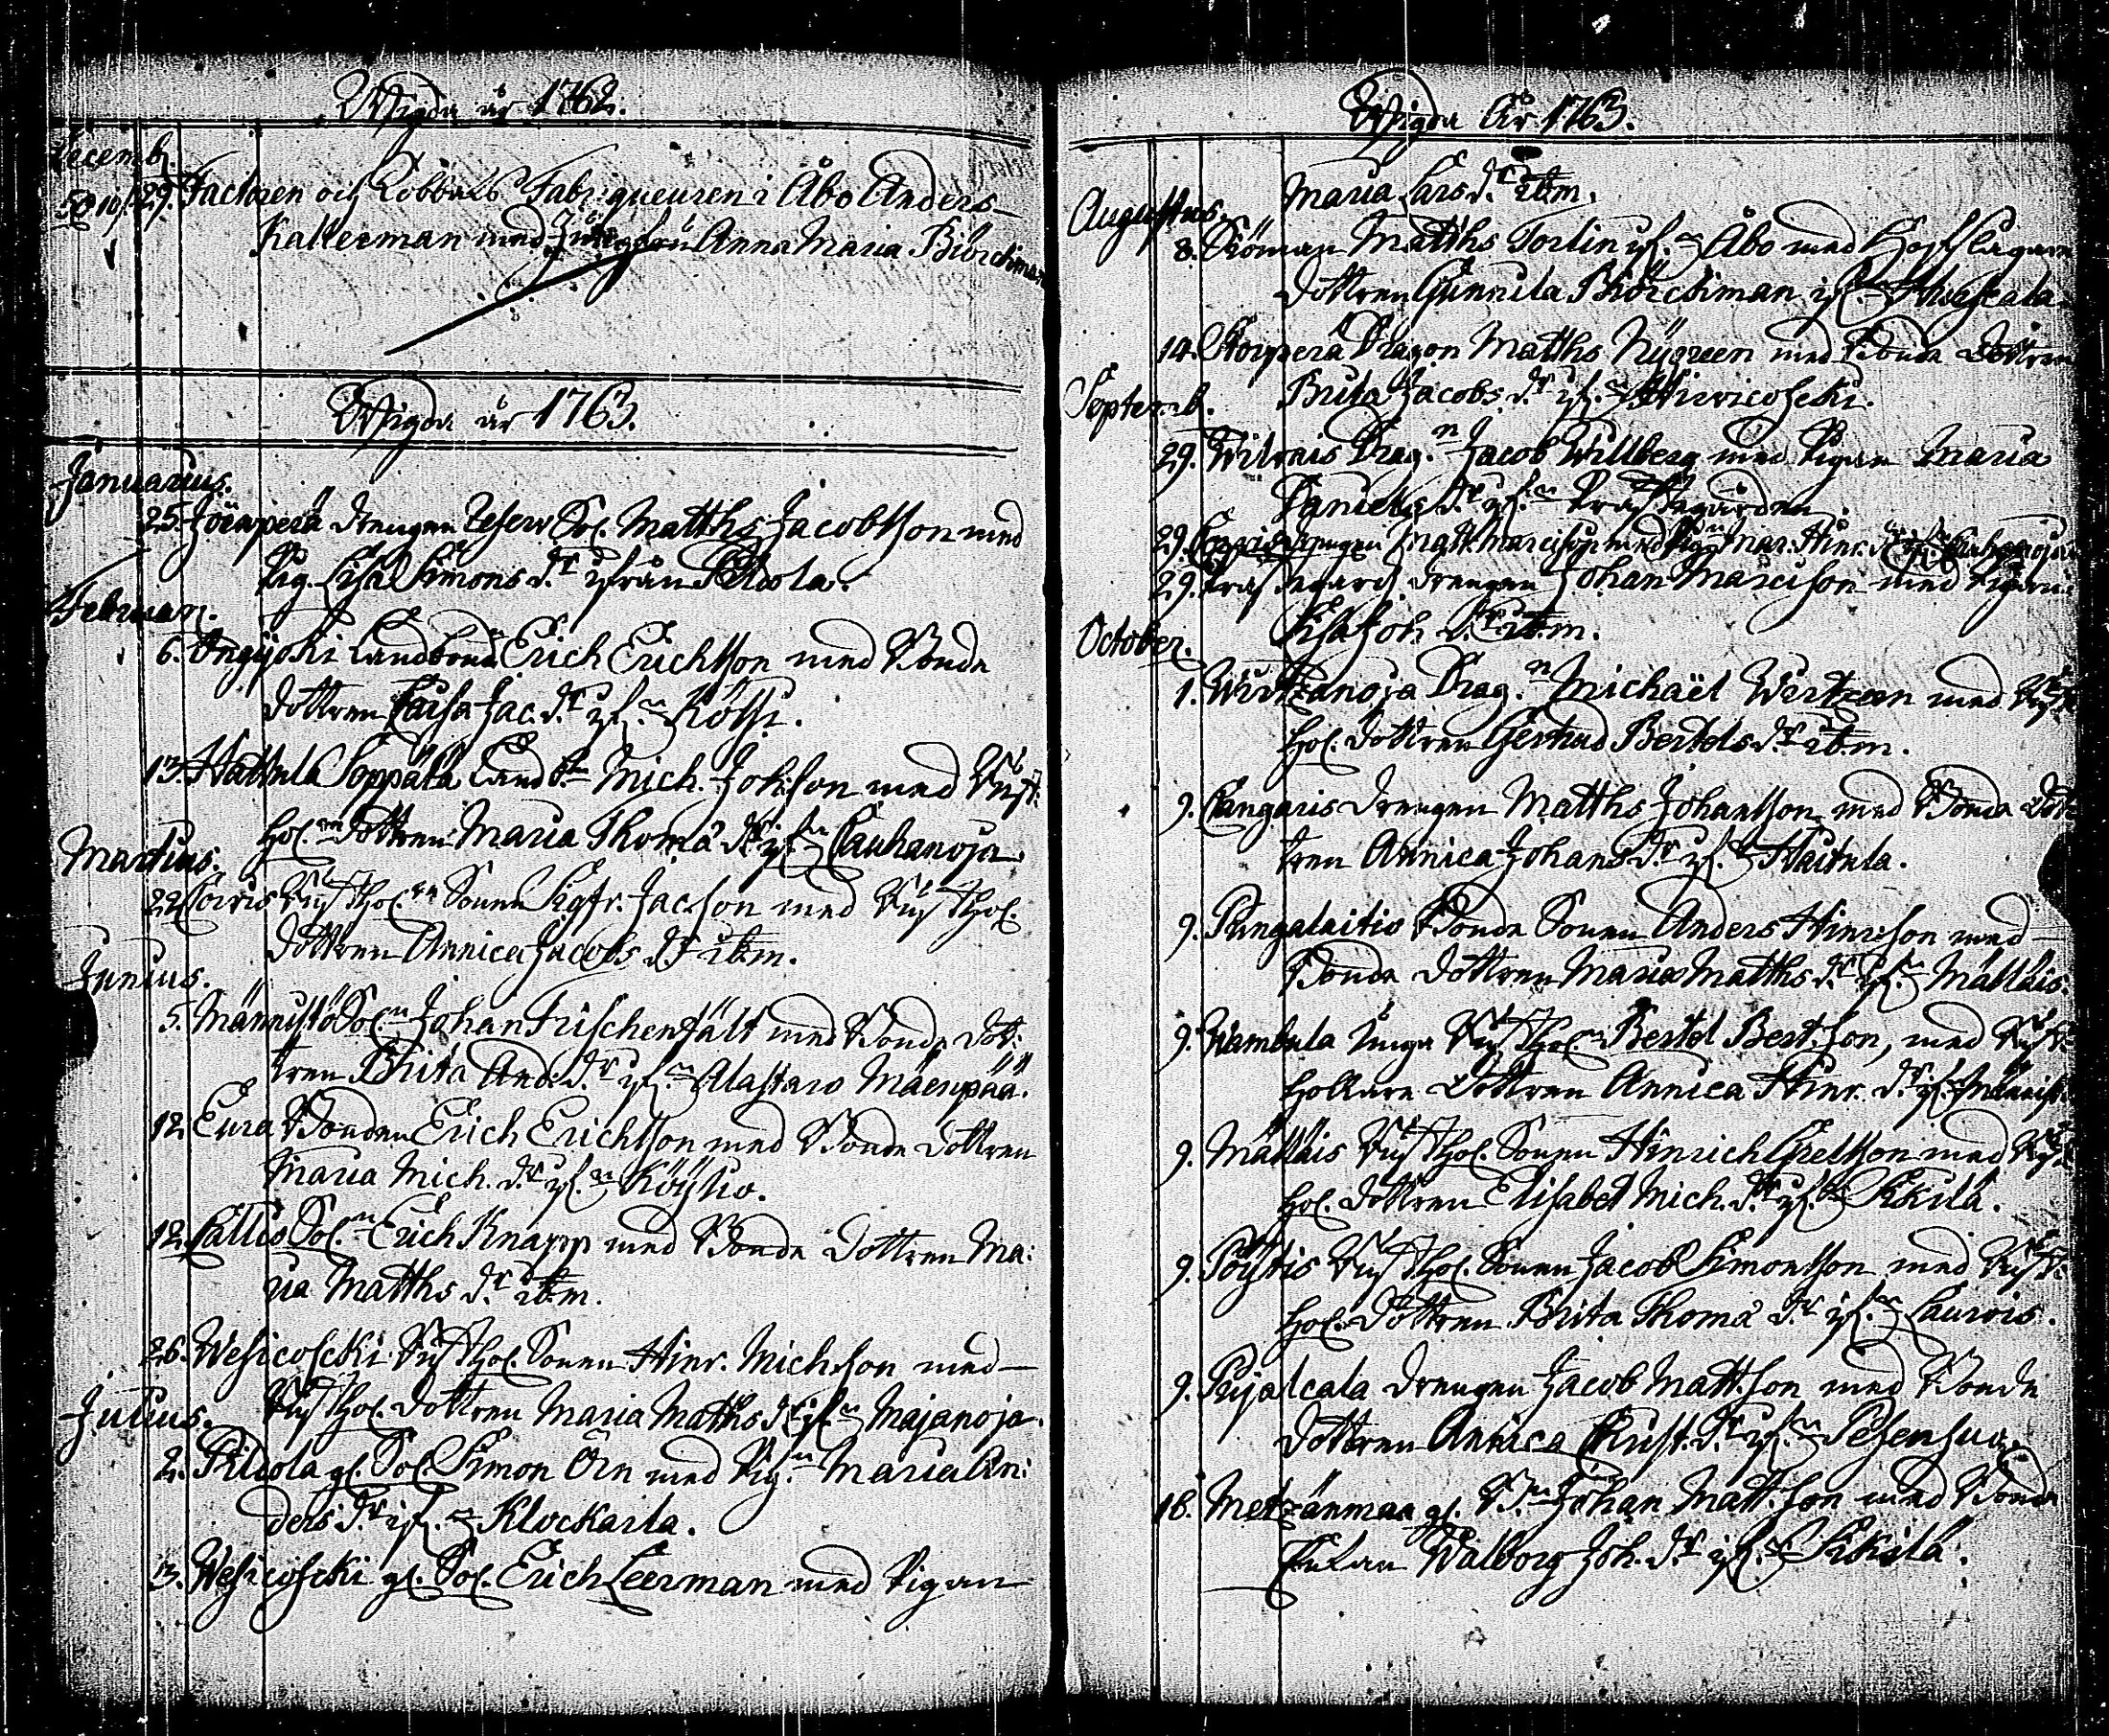 Wigda år 1762.
Decemb.
29. Factoren och Tobbaks Fabriqueuren i Åbo Anders
Kallerman med Jungfru Anna Maria Biörckman
Wigda år 1763.
Januarius.
25. Jöranperä Drengen Reserv Sol. Matths Jacobsson med
Pig. Lisa Simons dr ifrån
Februari.
6. Ångijoki Landbond. Erich Erichsson med Bonde
dottren Caisa Jac. dr if.n Kölhi.
13. Hattula Soppala Landb.n Mich. Joh:son med Rust:
hol. dottren Maria Thomæ dr if.n Cauhanoja.
Martius.
22. Coivis Rusthol. Sonen Sigfr. Jac.son med Rusthol.
dottren Annica Jacobs dr ibm.
Junius.
5. Männistö Sol.n Johan Frischenfält med Bonde dot:
tren Brita And. dr if.n Alastaro Mäenpää.
12. Eura Bonden Erich Erichsson med Bonde dottren
Maria Mich. dr if.n Köyliö.
12. Callis Sol.n Erich Knapp med Bonde dottren Ma:
ria Matths dr ibm.
26. Wesicoscki Rusthol. Sonen Hinr. Mich.son med
Rusthol. dottren Maria Matths dr if.n Majanoja.
Julius.
2. gl. Sol. Simon Örn med Pig.n Maria An:
ders dr if.n Klockarla.
3. Wesicoscki gl. Sol. Erich Leerman med Pigan
Wigda År 1763.
Maria Lars dr ibm.
Augustus.
8. Matths Torlin if.n Åbo med Hofslagare
dottren Gunnila Biörckman if.n
14. Dragon Matths Nygreen med Bonde dottren
Brita Jacobs dr if.n
Septemb.
29. Wilvais Drag.n Jacob Willberg med Pigan Maria
Daniels dr if.n Prästegården
29. Drengen med Mar. Hinr. dr
29. Prästegårds Drengen Johan Marcison med Pigan
Lisa Joh. dr ibm.
October.
1. Wirtzanoja Drag.n Michaël Wertzeen med Rust
hol. dottren Gertrud Bertels dr ibm.
9. Cangaris Drengen Matths Johansson med Bonde dot
tren Annica Johans dr if.n Hautula.
9. Pungalaitio Bonde Sonen Anders Hinr:son med
Bonde dottren Maria Matths dr if.n Mällais.
9. Wambula Unga Rusthol.n Bertel Bert.son, med Rust:
hollare dottren Annica Hinr. dr if.n
9. Mällais Rusthol. Sonen Hinrich Grelsson med Rust
hol. dottren Elisabet Mich. dr if.n Sikilä.
9. Pöytis Rusthol. Sonen Jacob Simonsson med Rust:
hol. dottren Brita Thomæ dr if.n Laurois.
9. Pujalcala Drengen Jacob Matt.son med Bonde
dottren Annica Crist. dr if.n Pesensuo.
16. Metzänmaa gl. B.n Johan Matt.son med Bonde
Enkan Walborg Joh. dr if.n Sikilä.